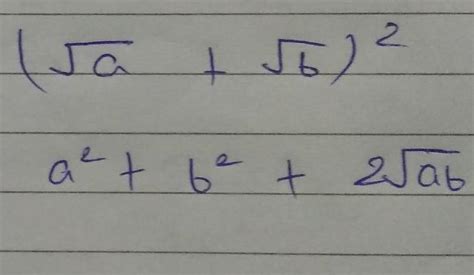 (√a + √b)²
a² + b² + 2√ab